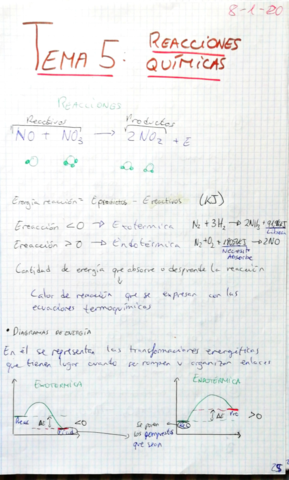 8-1-20
TEMA 5: REACCIONES QUÍMICAS
REACCIONES
Reactivos Productos
NO + NO3 → 2NO2 + E
Energía reacción = Eproductos - Ereactivos (KJ)
Ereacción <0 → Exotermica N2 + 3H2 → 2NH3 +
Ereacción >0 → Endotérmica N2 + O2 + → 2NO
Absorbe
Cantidad de energía que absorve o desprende la reacción
Calor de reacción que se expresan con las
ecuaciones termoquímicas
• DIAGRAMAS DE ENERGÍA
En él se representa las transformaciones energéticas
que tienen lugar cuando se rompen y organizan enlaces
EXOTÉRMICA ENDOTÉRMICA
ΔE <0 ΔE >0
Se ponen
los compuestos
que sean